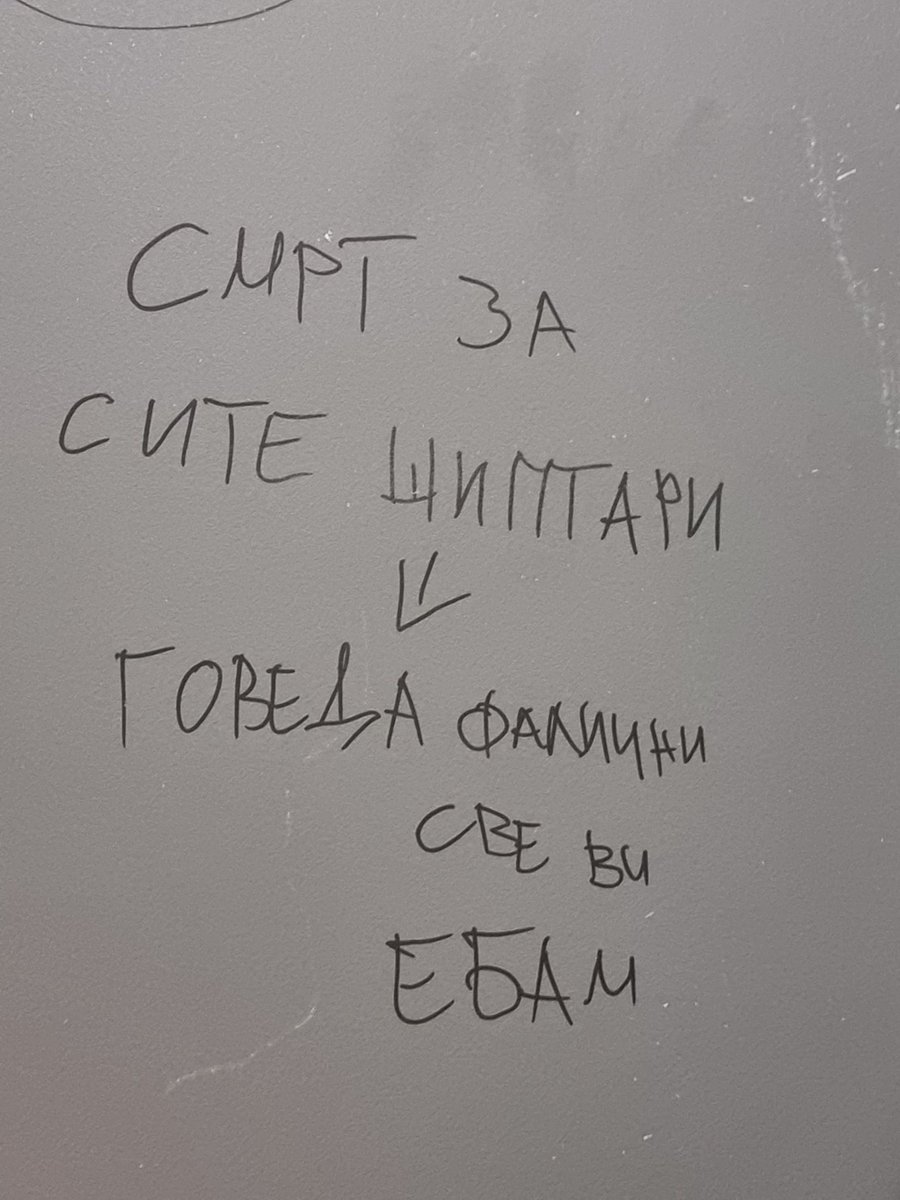 СМРТ ЗА
СИТЕ ШИПТАРИ
ГОВЕДА ФАЛИЧНИ
СВЕ ВИ
ЕБАМ